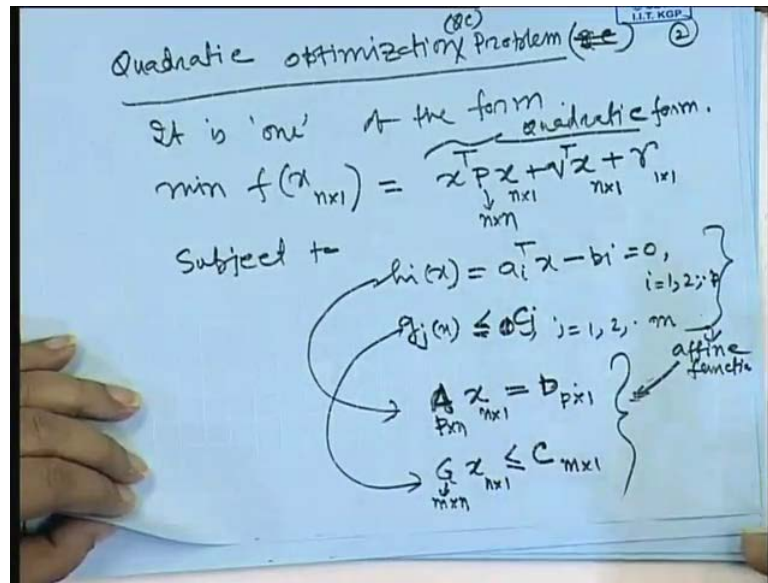 I.I.T. KGP
②
Quadratic optimization Problem (QC)
It is 'one' of the form quadratic form.
min f(x n×1) = xᵀ P x + qᵀ x + r
n×n n×1 n×1 1×1
Subject to
hi(x) = aiᵀ x − bi = 0,
i = 1, 2, ·· p
gj(x) ≤ Cj, j = 1, 2, ·· m
affine
functio
A x = b
p×n n×1 p×1
G x ≤ C
m×n n×1 m×1